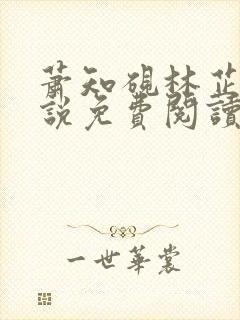 蕭知硯林芷
說免費閱讀
一世華裳